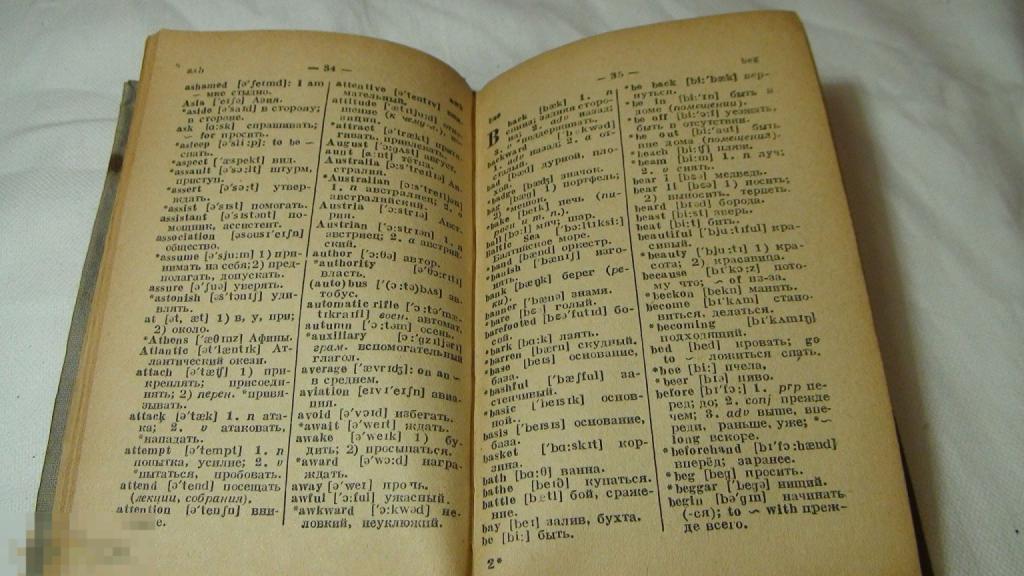 ash
— 34 —
ashamed [ə'ʃeɪmd]: I am
~ мне стыдно.
Asia ['eɪʃə] Азия.
*aside [ə'saɪd] в сторону;
в стороне.
ask [ɑ:sk] спрашивать;
~ for просить.
*asleep [ə'sli:p]: to be ~
спать.
*aspect ['æspekt] вид.
*assault [ə'sɔ:lt] штурм,
приступ.
*assert [ə'sə:t] утвер-
ждать.
*assist [ə'sɪst] помогать.
assistant [ə'sɪstənt] по-
мощник, ассистент.
association [əsousɪ'eɪʃn]
общество.
*assume [ə'sju:m] 1) при-
нимать на себя; 2) пред-
полагать, допускать.
assure [ə'ʃuə] уверять.
*astonish [əs'tɔnɪʃ] уди-
влять.
at [ət, æt] 1) в, у, при;
2) около.
*Athens ['æθɪnz] Афины.
Atlantic [ət'læntɪk] Ат-
лантический океан.
attach [ə'tætʃ] 1) при-
креплять; присоеди-
нять; 2) перен. *привя-
зывать.
attack [ə'tæk] 1. n ата-
ка; 2. v атаковать,
*нападать.
attempt [ə'tempt] 1. n
попытка, усилие; 2. v
*пытаться, пробовать.
attend [ə'tend] посещать
(лекции, собрания).
attention [ə'tenʃn] вни-
attentive [ə'tentɪv] вни-
мательный.
attitude ['ætɪtju:d] отно-
шение (к чему-л.),
*attract [ə'trækt] притя-
гивать, привлекать.
August ['ɔ:gəst] август.
aunt [ɑ:nt] тётка.
Australia [ɔ:s'treɪljə] Ав-
стралия.
*Australian [ɔ:s'treɪljən]
1. n австралиец; 2. a
австралийский.
Austria ['ɔ:strɪə] Авст-
рия.
Austrian ['ɔ:strɪən] 1. n
австриец; 2. a австрий-
ский.
author ['ɔ:θə] автор.
*authority [ɔ:'θɔrɪtɪ]
власть.
(auto)bus ['(ɔ:tə)bʌs] ав-
тобус.
automatic rifle [ɔ:tə'mæ-
tɪkraɪfl] воен. автомат.
autumn ['ɔ:təm] осень.
*auxiliary [ɔ:g'zɪljərɪ]
грам. вспомогательный
глагол.
average ['ævrɪdʒ]: on an ~
в среднем.
aviation [eɪvɪ'eɪʃn] авиа-
ция.
avoid [ə'vɔɪd] избегать.
*await [ə'weɪt] ждать.
awake [ə'weɪk] 1) бу-
дить; 2) просыпаться.
*award [ə'wɔ:d] награ-
ждать.
away [ə'weɪ] прочь.
awful ['ɔ:ful] ужасный.
*awkward ['ɔ:kwəd] не-
ловкий, неуклюжий.
— 35 —
beg
B
back [bæk] 1. n
спина; задняя сторо-
2. adv назад;
backward ['bækwəd]
1. adv назад; 2. a от-
сталый.
bad [bæd] дурной, пло-
хой.
*badge [bædʒ] значок.
bag [bæg] 1) портфель;
2) *мешок.
*bake [beɪk] печь (пи-
роги и т. п.).
ball [bɔ:l] мяч; шар.
Baltic Sea ['bɔ:ltɪksi:]
Балтийское море.
*band [bænd] оркестр.
*banish ['bænɪʃ] изго-
нять.
bank [bæŋk] берег (ре-
ки).
banner ['bænə] знамя.
*bare [bɛə] голый.
barefooted [bɛə'futɪd] бо-
сой.
*bark [bɑ:k] лаять.
*barren [bærn] скудный.
*base [beɪs] основание,
база.
*bashful ['bæʃful] за-
стенчивый.
*basic ['beɪsɪk] основ-
ной.
basis ['beɪsɪs] основание,
база.
basket ['bɑ:skɪt] кор-
зина.
bath [bɑ:θ] ванна.
bathe [beɪð] купаться.
battle [bætl] бой, сраже-
ние.
bay [beɪ] залив, бухта.
be [bi:] быть.
2*
*be back [bi:'bæk] вер-
нуться.
*be in [bi:'ɪn] быть в
доме (помещении).
*be off [bi:'ɔf] уезжать,
быть в отсутствии.
*be out [bi:'aut] быть
вне дома (помещения).
*beach [bi:tʃ] пляж.
*beam [bi:m] 1. n луч;
2. v сиять.
bear I [bɛə] медведь.
bear II [bɛə] 1) носить;
2) выносить, терпеть.
beard [bɪəd] борода.
beast [bi:st] зверь.
beat [bi:t] бить.
beautiful ['bju:tɪful] кра-
сивый.
*beauty ['bju:tɪ] 1) кра-
сота; 2) красавица.
because [bɪ'kɔ:z] пото-
му что; ~ of из-за.
*beckon [bekn] манить.
become [bɪ'kʌm] стано-
виться, делаться.
*becoming [bɪ'kʌmɪŋ]
подходящий.
bed [bed] кровать; go
to ~ ложиться спать.
*bee [bi:] пчела.
*beer [bɪə] пиво.
before [bɪ'fɔ:] 1. prp пе-
ред; до; 2. conj прежде
чем; 3. adv выше, впе-
реди, раньше, уже; *~
long вскоре.
*beforehand [bɪ'fɔ:hænd]
вперёд; заранее.
*beg [beg] просить.
*beggar ['begə] нищий.
begin [bə'gɪn] начинать
(-ся); to ~ with преж-
де всего.